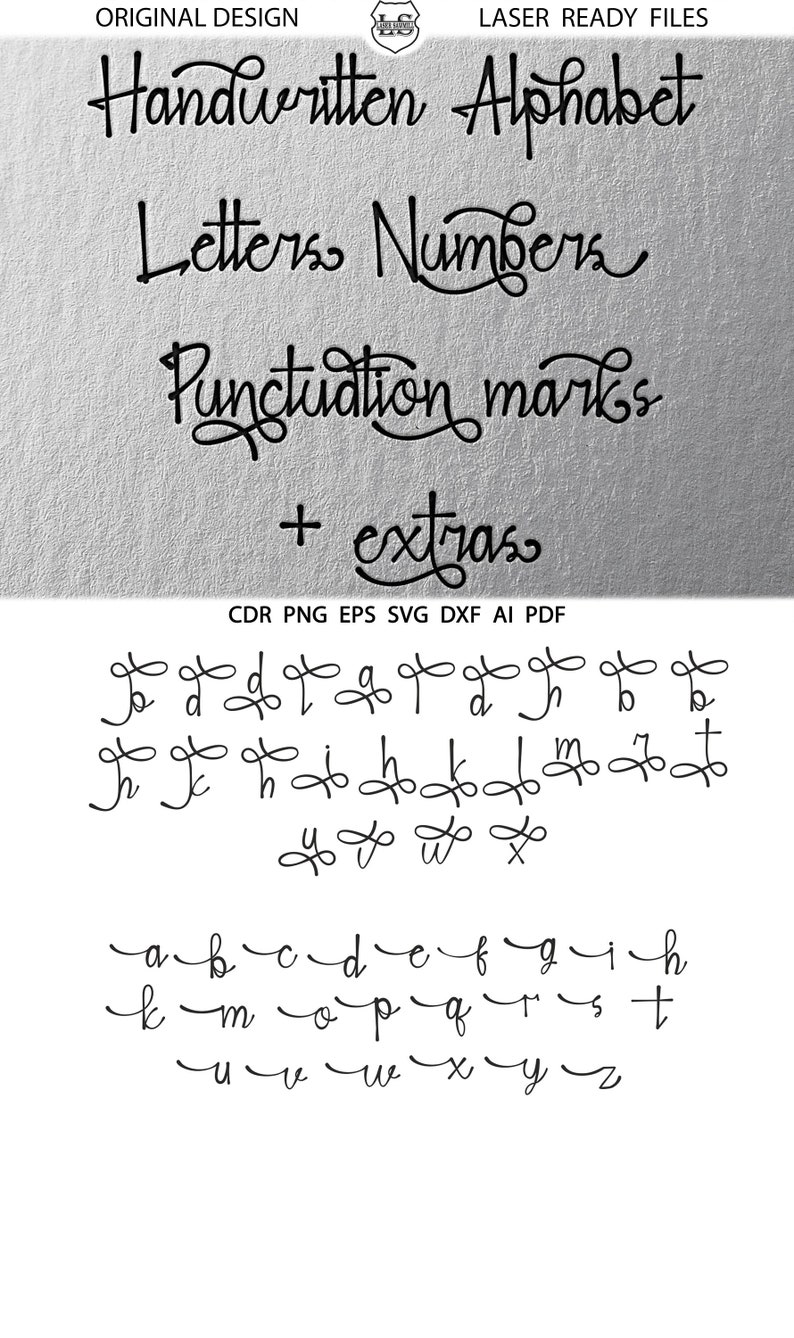 ORIGINAL DESIGN LS LASER SAWMILL LASER READY FILES
Handwritten Alphabet
Letters Numbers
Punctuation marks
+ extras
CDR PNG EPS SVG DXF AI PDF
b d d l q l d h b b
h c h i h k l m r t
y v w x
a b c d e f g i h
k m o p q r s t
u v w x y z